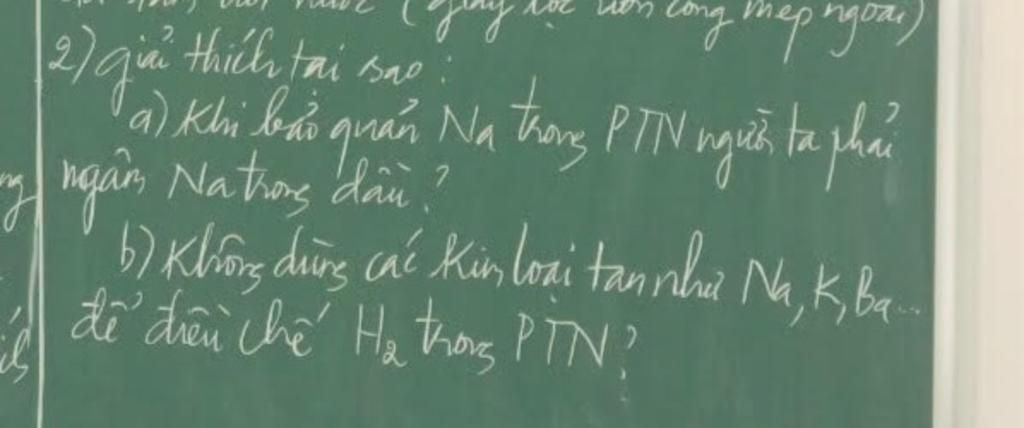 nước (giấy lọc uốn cong mép ngoài)
2) giải thích tại sao:
a) Khi bảo quản Na trong PTN người ta phải
ngâm Na trong dầu?
b) Không dùng các Kim loại tan như Na, K, Ba...
để điều chế H₂ trong PTN?